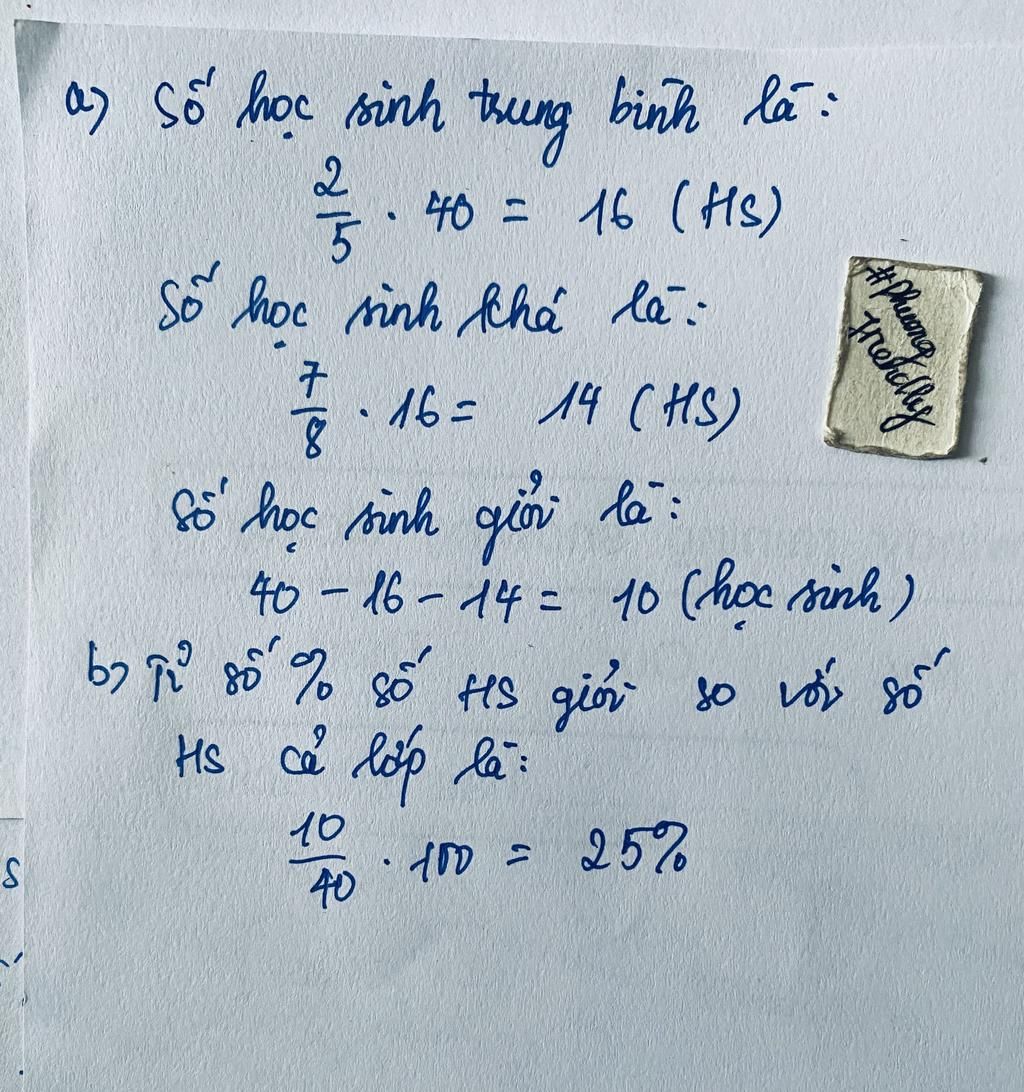 a) Số học sinh trung bình là:
2/5 . 40 = 16 (HS)
Số học sinh khá là:
7/8 . 16 = 14 (HS)
Số học sinh giỏi là:
40 - 16 - 14 = 10 (học sinh)
b) Tỉ số % số HS giỏi so với số
HS cả lớp là:
10/40 . 100 = 25%
#Phuong